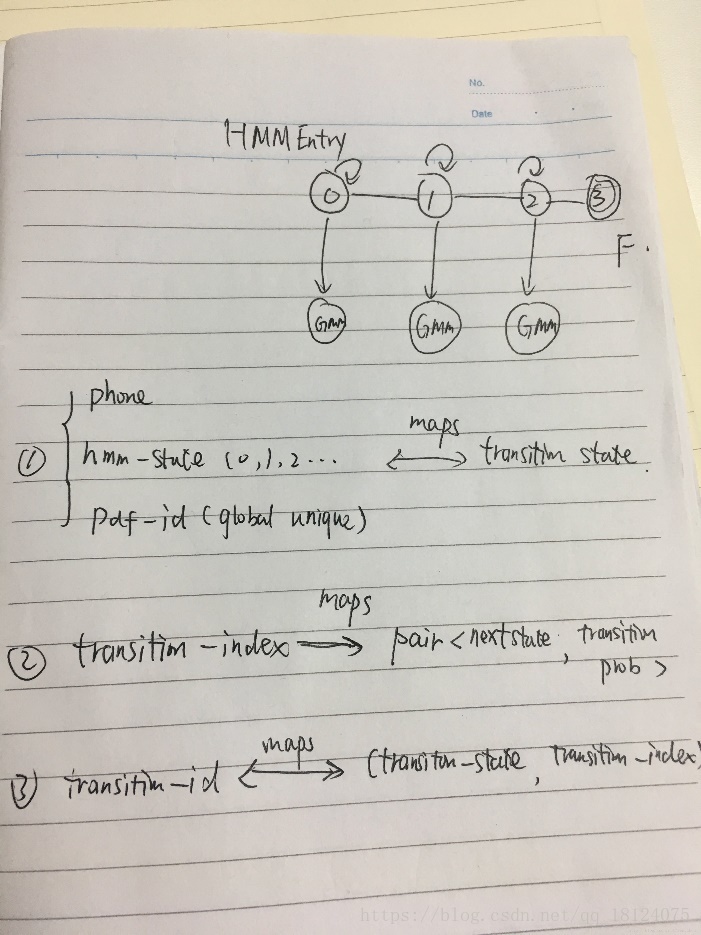 No.
Date
HMM Entry
0 1 2 3
F.
GMM GMM GMM
phone
① hmm-state (0,1,2... maps transition state.
pdf-id (global unique)
maps
② transition-index pair < next state, transition
prob >
maps
③ transition-id (transition-state, transition-index)
https://blog.csdn.net/qq_18124075